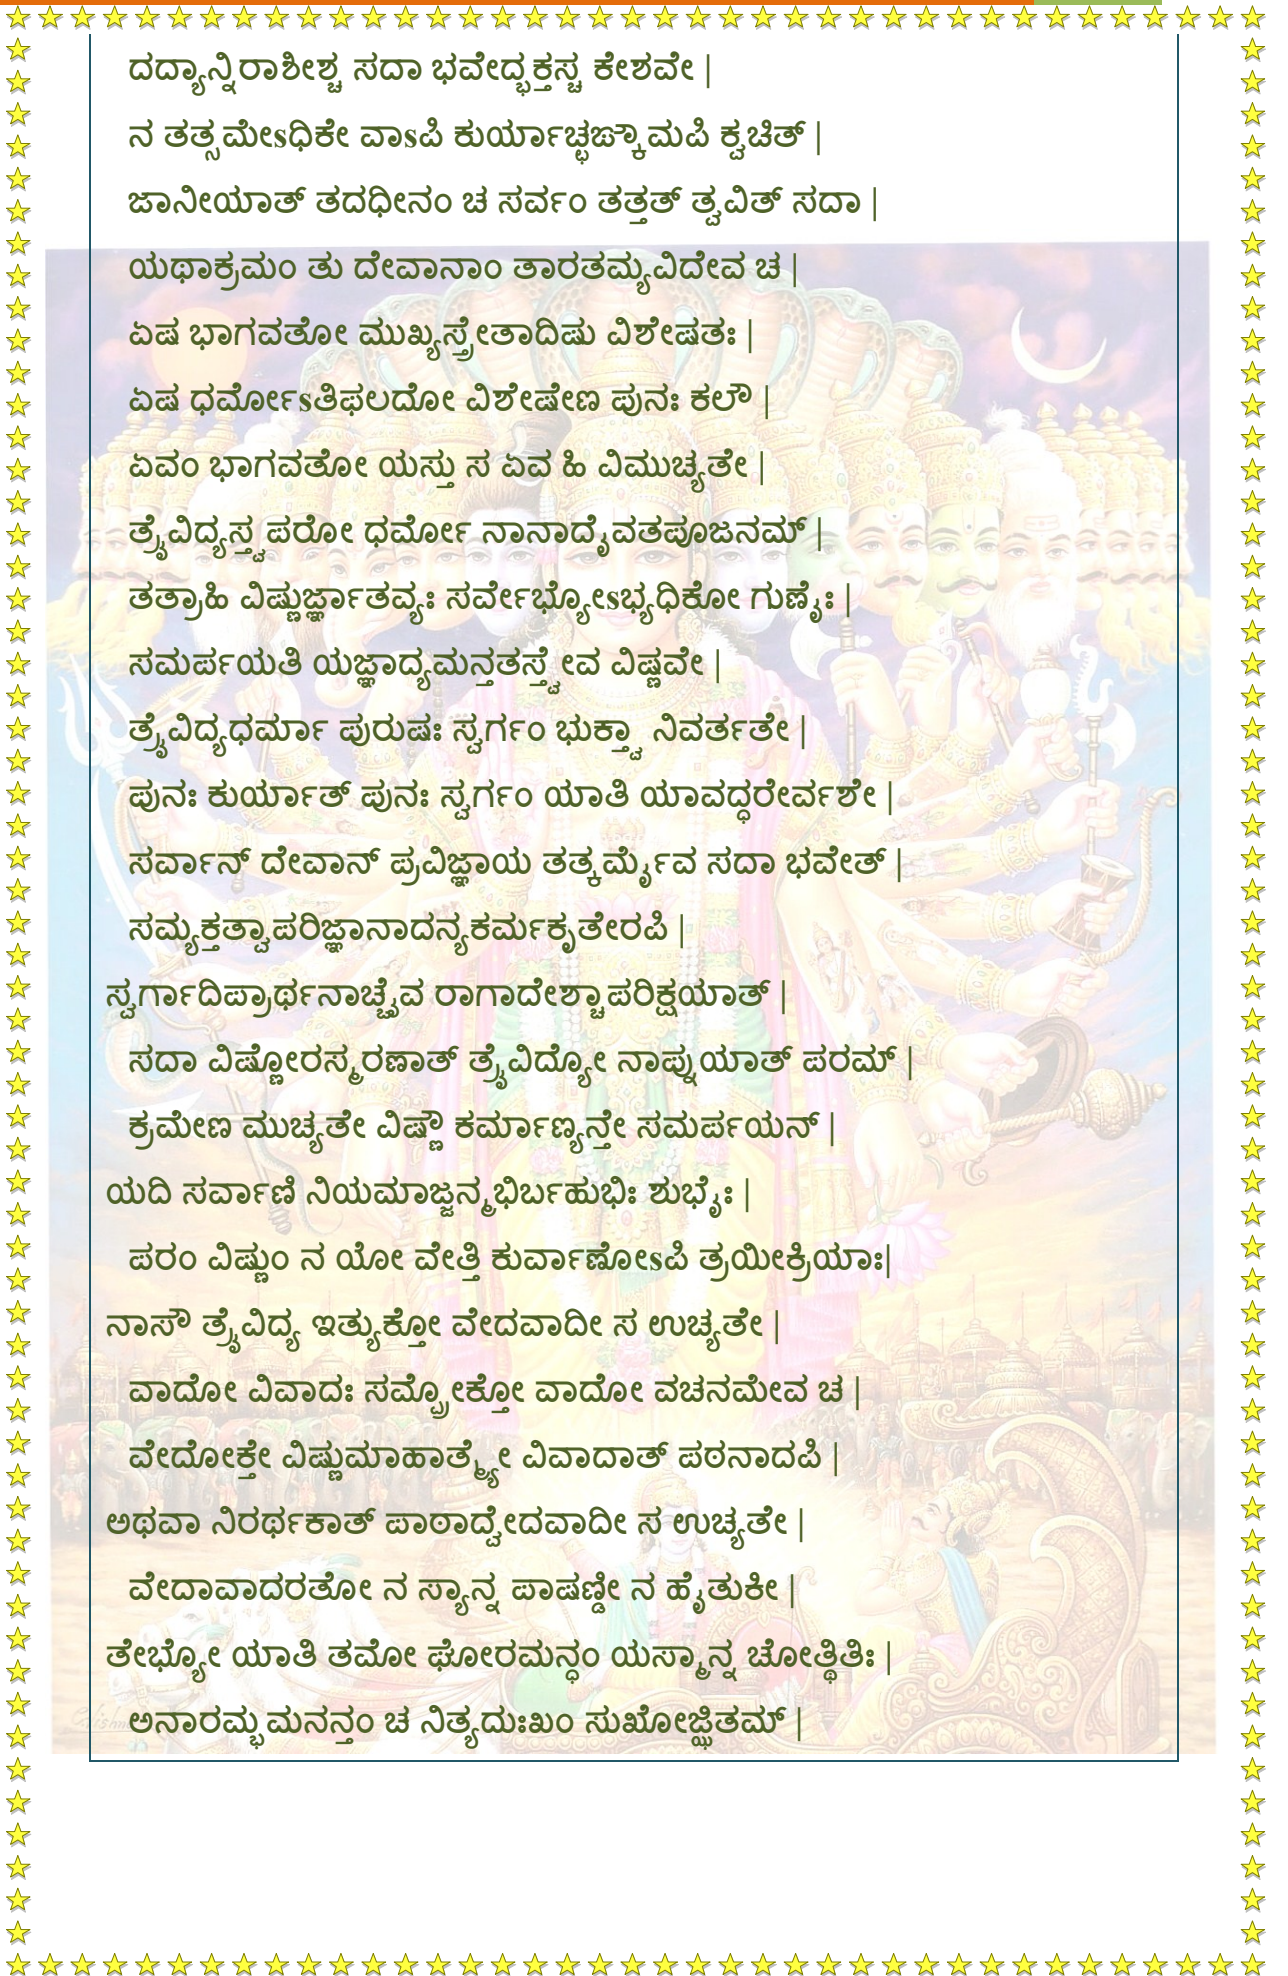 ದದ್ಯಾನ್ನಿರಾಶೀಶ್ಚ ಸದಾ ಭವೇದ್ಭಕ್ತಸ್ಚ ಕೇಶವೇ |
ನ ತತ್ಸಮೇsಧಿಕೇ ವಾsಪಿ ಕುರ್ಯಾಚ್ಛಙ್ಕಾಮಪಿ ಕ್ವಚಿತ್ |
ಜಾನೀಯಾತ್ ತದಧೀನಂ ಚ ಸರ್ವಂ ತತ್ತತ್ ತ್ವವಿತ್ ಸದಾ |
ಯಥಾಕ್ರಮಂ ತು ದೇವಾನಾಂ ತಾರತಮ್ಯವಿದೇವ ಚ |
ಏಷ ಭಾಗವತೋ ಮುಖ್ಯಸ್ತ್ರೇತಾದಿಷು ವಿಶೇಷತಃ |
ಏಷ ಧರ್ಮೋsತಿಫಲದೋ ವಿಶೇಷೇಣ ಪುನಃ ಕಲೌ |
ಏವಂ ಭಾಗವತೋ ಯಸ್ತು ಸ ಏವ ಹಿ ವಿಮುಚ್ಯತೇ |
ತ್ರೈವಿದ್ಯಸ್ತ್ವಪರೋ ಧರ್ಮೋ ನಾನಾದೈವತಪೂಜನಮ್ |
ತತ್ರಾಹಿ ವಿಷ್ಣುರ್ಜ್ಞಾತವ್ಯಃ ಸರ್ವೇಭ್ಯೋsಭ್ಯಧಿಕೋ ಗುಣೈಃ |
ಸಮರ್ಪಯತಿ ಯಜ್ಞಾದ್ಯಮನ್ತತಸ್ತ್ವೇವ ವಿಷ್ಣವೇ |
ತ್ರೈವಿದ್ಯಧರ್ಮಾ ಪುರುಷಃ ಸ್ವರ್ಗಂ ಭುಕ್ತ್ವಾ ನಿವರ್ತತೇ |
ಪುನಃ ಕುರ್ಯಾತ್ ಪುನಃ ಸ್ವರ್ಗಂ ಯಾತಿ ಯಾವದ್ಧರೇರ್ವಶೇ |
ಸರ್ವಾನ್ ದೇವಾನ್ ಪ್ರವಿಜ್ಞಾಯ ತತ್ಕರ್ಮೈವ ಸದಾ ಭವೇತ್ |
ಸಮ್ಯಕ್ತತ್ತ್ವಾಪರಿಜ್ಞಾನಾದನ್ಯಕರ್ಮಕೃತೇರಪಿ |
ಸ್ವರ್ಗಾದಿಪ್ರಾರ್ಥನಾಚ್ಚೈವ ರಾಗಾದೇಶ್ಚಾಪರಿಕ್ಷಯಾತ್ |
ಸದಾ ವಿಷ್ಣೋರಸ್ಮರಣಾತ್ ತ್ರೈವಿದ್ಯೋ ನಾಪ್ನುಯಾತ್ ಪರಮ್ |
ಕ್ರಮೇಣ ಮುಚ್ಯತೇ ವಿಷ್ಣೌ ಕರ್ಮಾಣ್ಯನ್ತೇ ಸಮರ್ಪಯನ್ |
ಯದಿ ಸರ್ವಾಣಿ ನಿಯಮಾಜ್ಜನ್ಮಭಿರ್ಬಹುಭಿಃ ಶುಭೈಃ |
ಪರಂ ವಿಷ್ಣುಂ ನ ಯೋ ವೇತ್ತಿ ಕುರ್ವಾಣೋsಪಿ ತ್ರಯೀಕ್ರಿಯಾಃ|
ನಾಸೌ ತ್ರೈವಿದ್ಯ ಇತ್ಯುಕ್ತೋ ವೇದವಾದೀ ಸ ಉಚ್ಯತೇ |
ವಾದೋ ವಿವಾದಃ ಸಮ್ಪ್ರೋಕ್ತೋ ವಾದೋ ವಚನಮೇವ ಚ |
ವೇದೋಕ್ತೇ ವಿಷ್ಣುಮಾಹಾತ್ಮ್ಯೇ ವಿವಾದಾತ್ ಪಠನಾದಪಿ |
ಅಥವಾ ನಿರರ್ಥಕಾತ್ ಪಾಠಾದ್ವೇದವಾದೀ ಸ ಉಚ್ಯತೇ |
ವೇದಾವಾದರತೋ ನ ಸ್ಯಾನ್ನ ಪಾಷಣ್ಡೀ ನ ಹೈತುಕೀ |
ತೇಭ್ಯೋ ಯಾತಿ ತಮೋ ಘೋರಮನ್ಧಂ ಯಸ್ಮಾನ್ನ ಚೋತ್ಥಿತಿಃ |
ಅನಾರಮ್ಭಮನನ್ತಂ ಚ ನಿತ್ಯದುಃಖಂ ಸುಖೋಜ್ಝಿತಮ್ |